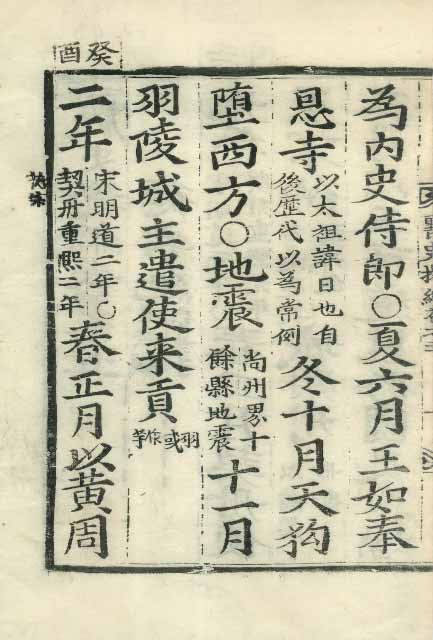 為内史侍郎○夏六月王如奉
恩寺以太祖諱日也自後歷代以為常例冬十月天狗
墮西方○地震尚州界十餘縣地震十一月
羽陵城主遣使来貢羽或作芋
癸酉
二年宋明道二年○契丹重熙二年春正月以黄周